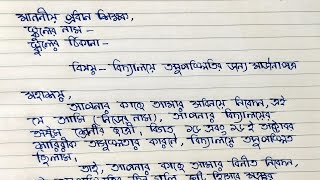 মাননীয় প্রধান শিক্ষক,
স্কুলের নাম –
স্কুলের ঠিকানা –
বিষয় – বিদ্যালয়ে অনুপস্থিতির জন্য মার্জনাপত্র
মহাশয়,
আপনার কাছে আমার সবিনয় নিবেদন, এই
যে আমি (নিজের নাম), আপনার বিদ্যালয়ের
শ্রেণীর ছাত্রী, বিগত
শারীরিক অসুস্থতার কারণে, বিদ্যালয়ে অনুপস্থিত
ছিলাম।
তাই, আপনার কাছে আমার বিনীত নিবেদন,